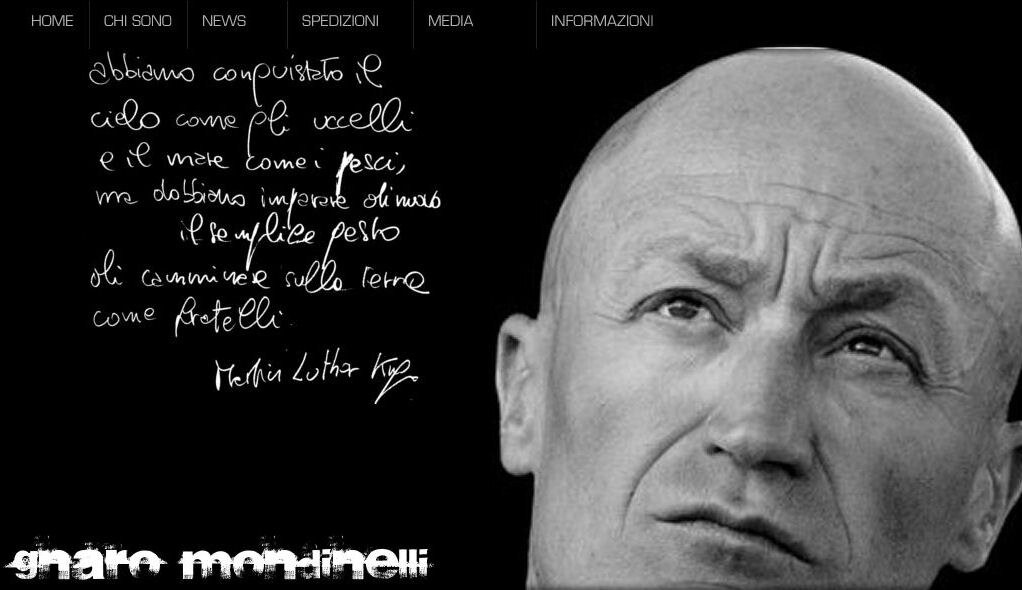 HOME CHI SONO NEWS SPEDIZIONI MEDIA INFORMAZIONI
abbiamo conquistato il
cielo come gli uccelli
e il mare come i pesci,
ma dobbiamo imparare di nuovo
il semplice gesto
di camminare sulla terra
come fratelli.
Martin Luther King.
gnaro mondinelli